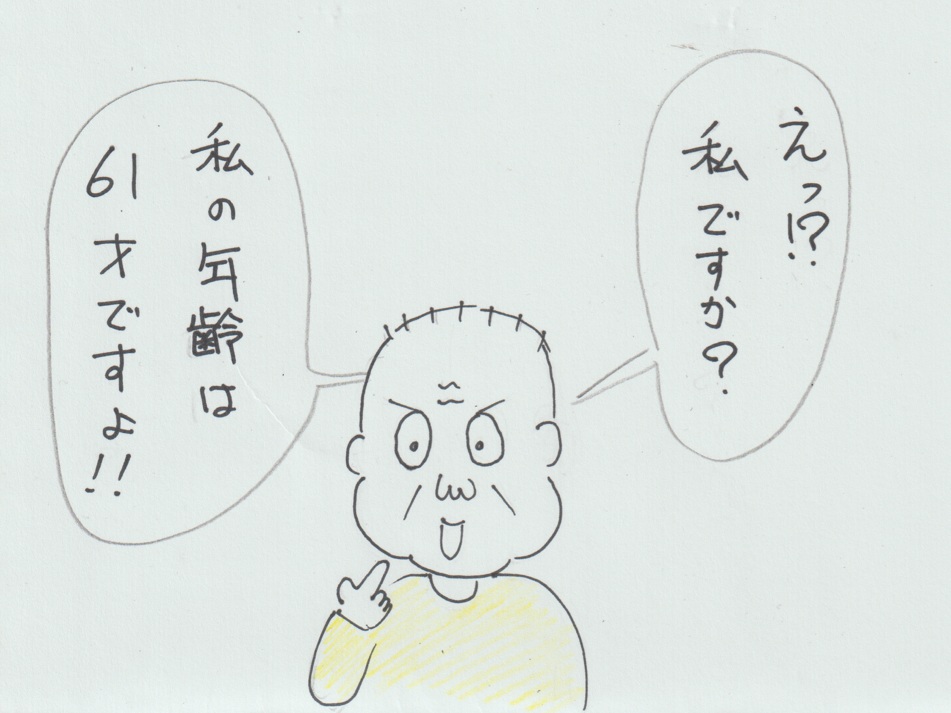 えっ!?
私ですか?
私の年齢は
61才ですよ!!